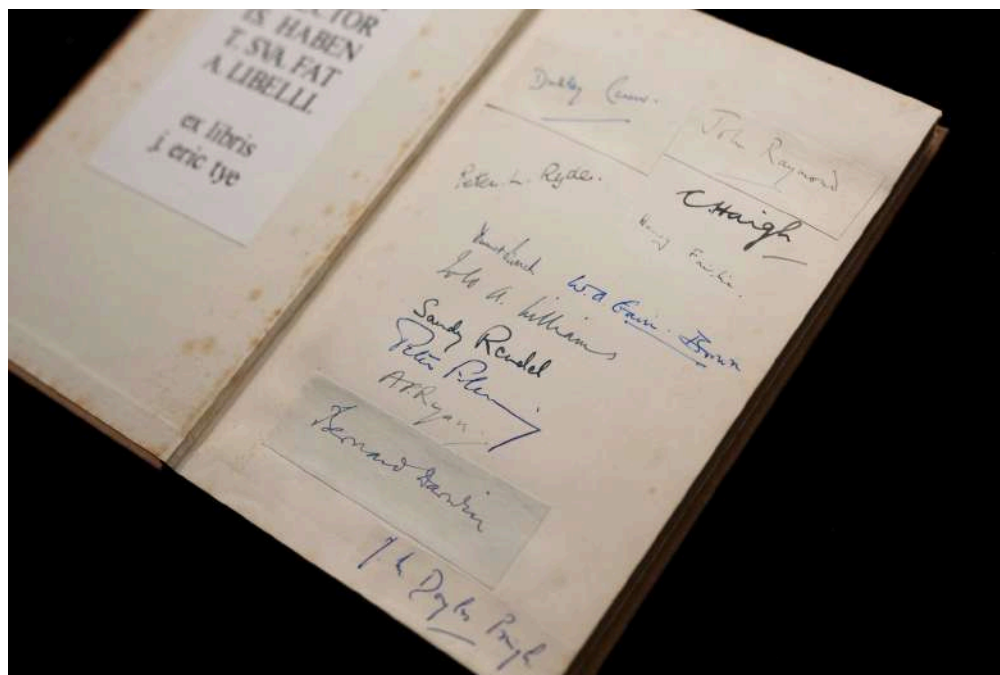 CTOR
IS. HABEN
T. SVA. FAT
A. LIBELLI.
ex libris
j. eric tye
Dudley Carew.
John Raymond
Peter L. Ryde.
CHaigh
Henry Fairlie.
W.A. Gain. Brown
A. Williams
Sandy Rendel
Peter Fleming.
APRyan.
Bernard Darwin
Pugh